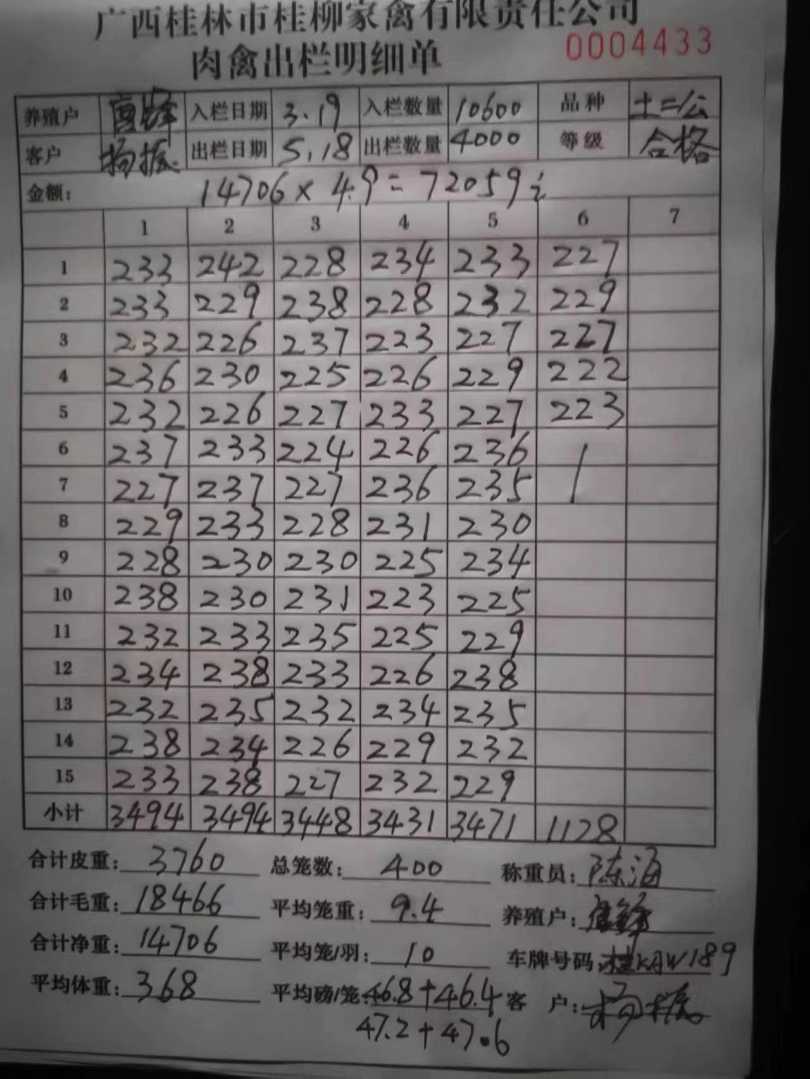 广西桂林市桂柳家禽有限责任公司
肉禽出栏明细单 0004433
养殖户 入栏日期 3.19 入栏数量 10600 品种 土二公
客户 杨振 出栏日期 5.18 出栏数量 4000 等级 合格
金额: 14706×4.9=72059
1 2 3 4 5 6 7
1 233 242 228 234 233 227
2 233 229 238 228 232 229
3 232 226 237 223 227 227
4 236 230 225 226 229 222
5 232 226 227 233 227 223
6 237 233 224 226 236
7 227 237 227 236 235
8 229 233 228 231 230
9 228 230 230 225 234
10 238 230 231 223 225
11 232 233 235 225 229
12 234 238 233 226 238
13 232 235 232 234 235
14 238 234 226 229 232
15 233 238 227 232 229
小计 3494 3494 3448 3431 3471 1128
合计皮重: 3760 总笼数: 400 称重员: 陈海
合计毛重: 18466 平均笼重: 9.4 养殖户:
合计净重: 14706 平均笼/羽: 10 车牌号码: 桂KAW189
平均体重: 3.68 平均磅/笼: 46.8+46.4 客户: 杨振
47.2+47.6